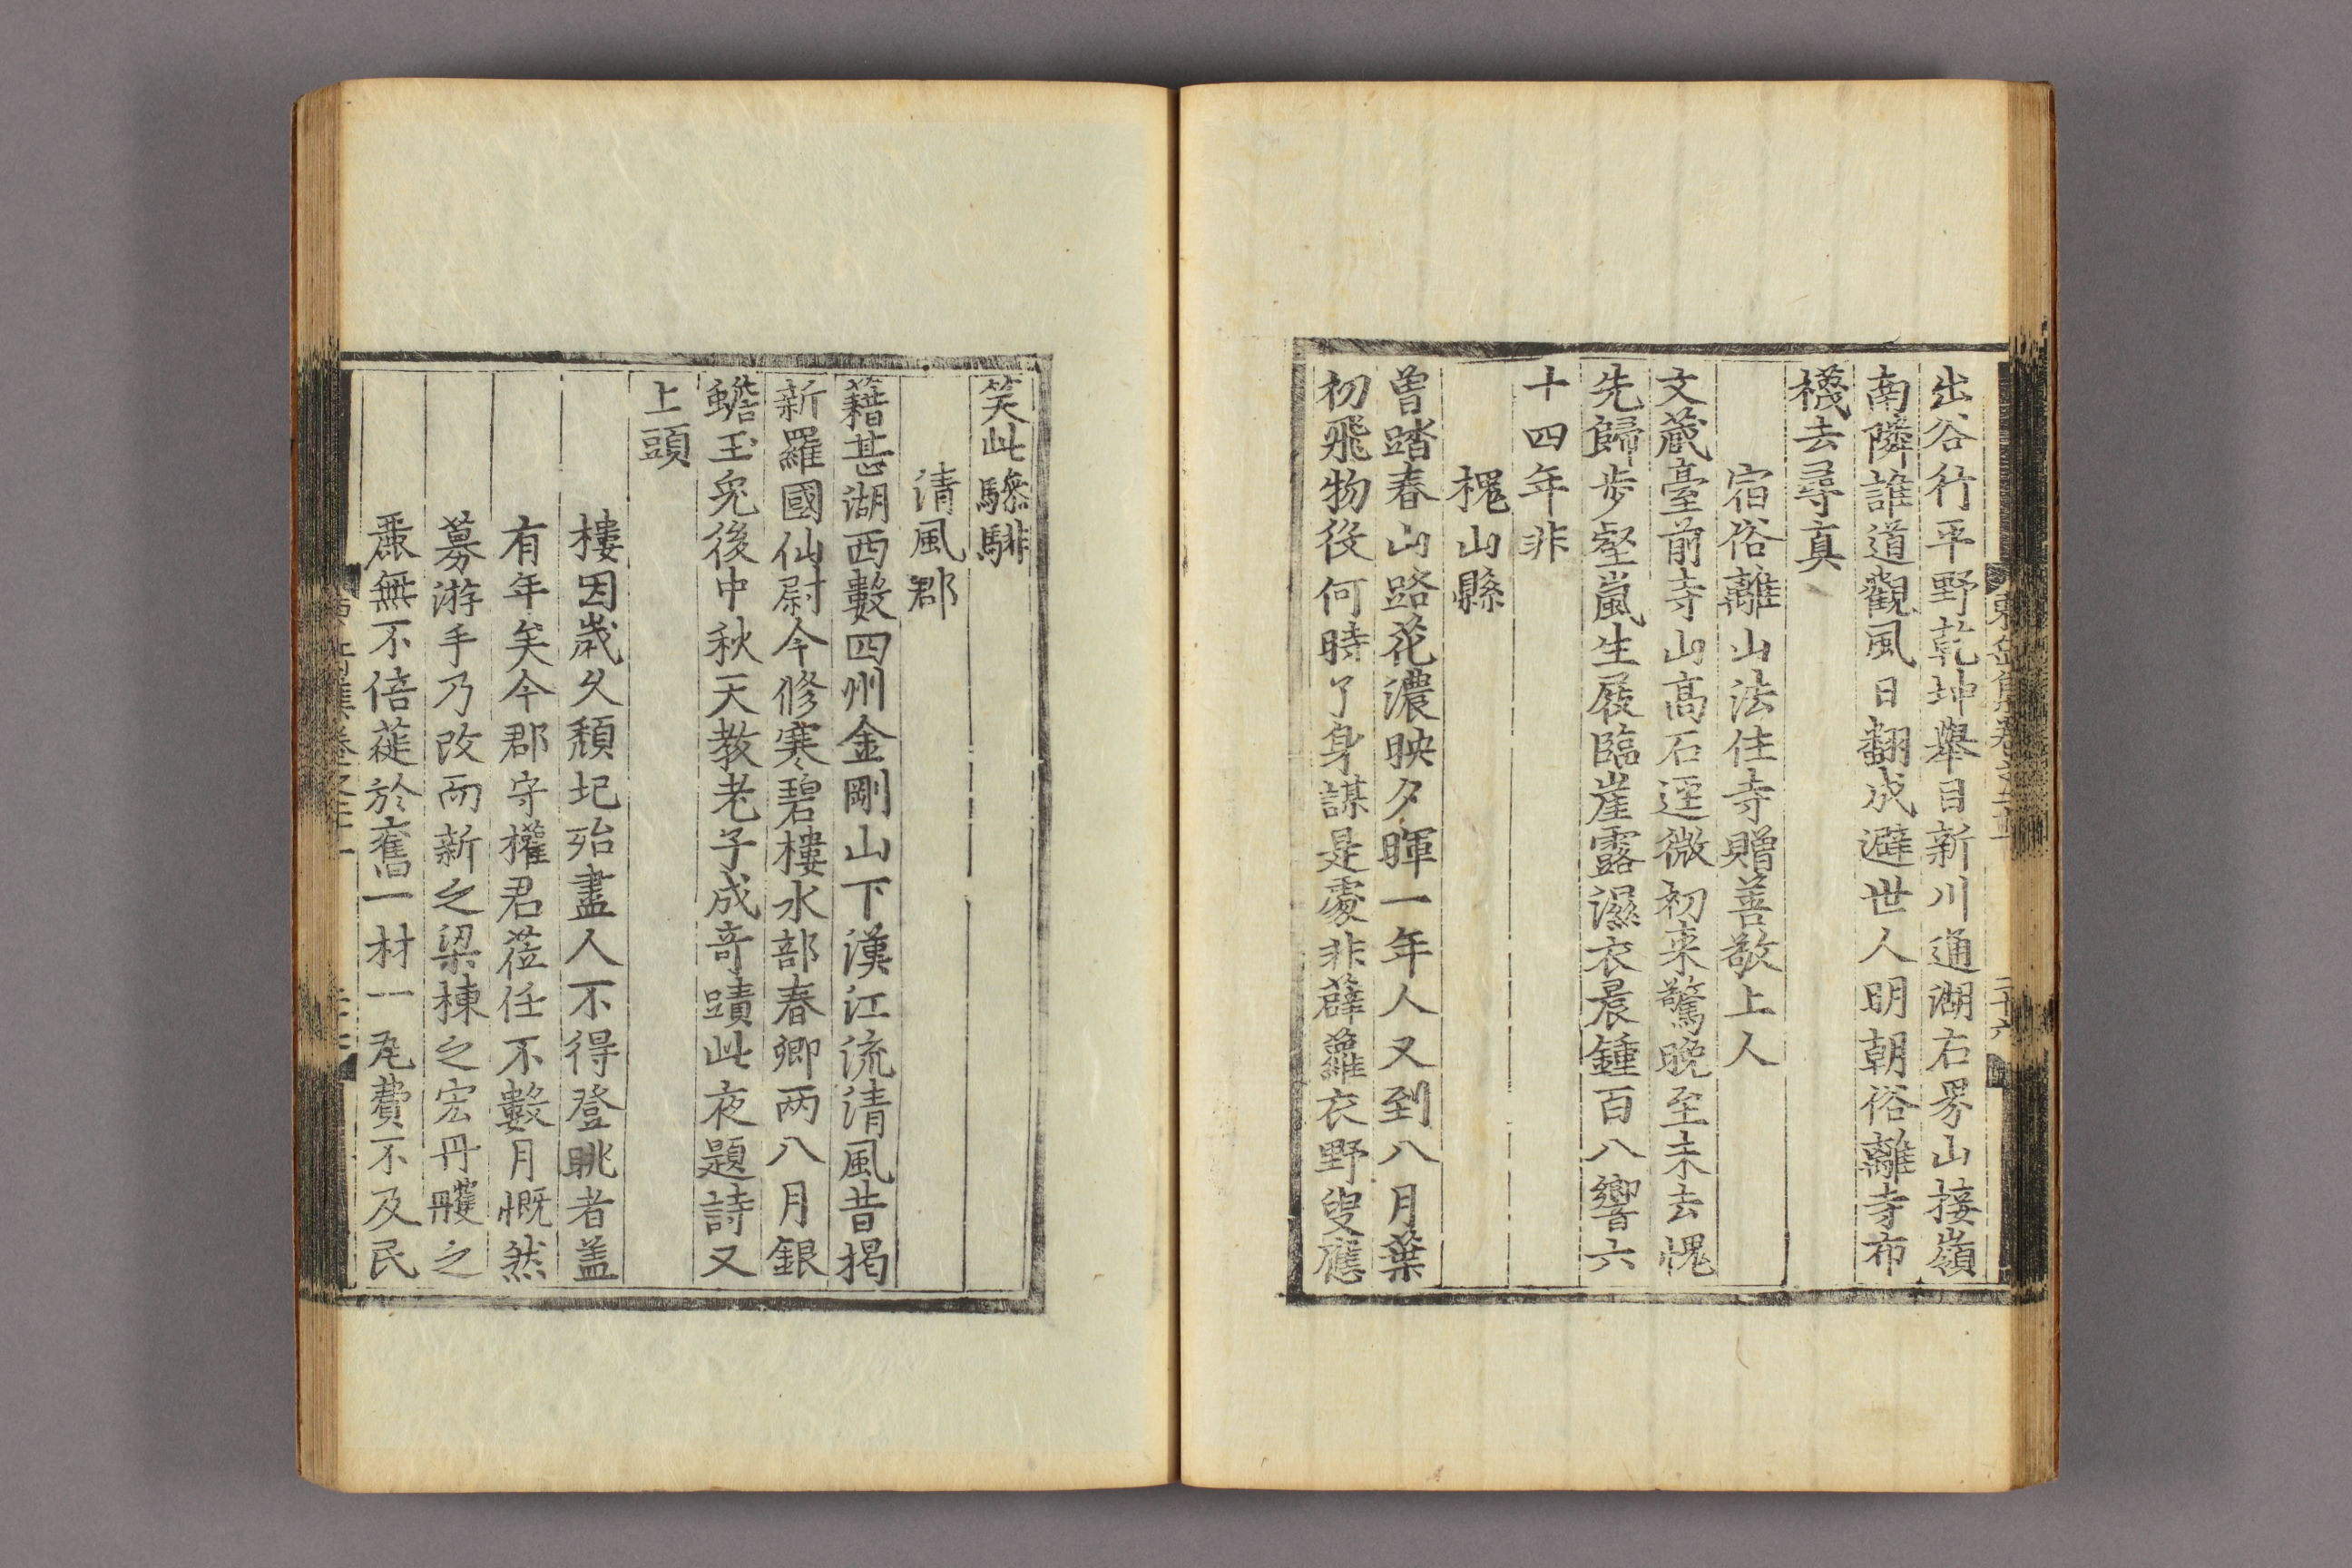 出谷行平野乾坤舉目新川通湖右界山接嶺
南隣誰道觀風日翻成避世人明朝俗離寺布
襪去尋真
宿俗離山法住寺贈善敬上人
文蔵臺前寺山高石逕微初来驚晚至未去愧
先歸步壑嵐生屐臨崖露濕衣晨鍾百八響六
十四年非
槐山縣
曽踏春山路花濃映夕暉一年人又到八月葉
初飛物役何時了身謀是處非薜蘿衣野叟應
笑此驂騑
清風郡
藉甚湖西數四州金剛山下漢江流清風昔揭
新羅國仙尉今修寒碧樓水部春卿两八月銀
蟾玉兎後中秋天教老子成竒蹟此夜題詩又
上頭
樓因歲久頹圮殆盡人不得登眺者盖
有年矣今郡守權君莅任不數月慨然
募游手乃改而新之梁棟之宏丹雘之
麗無不倍蓰於舊一材一瓦費不及民